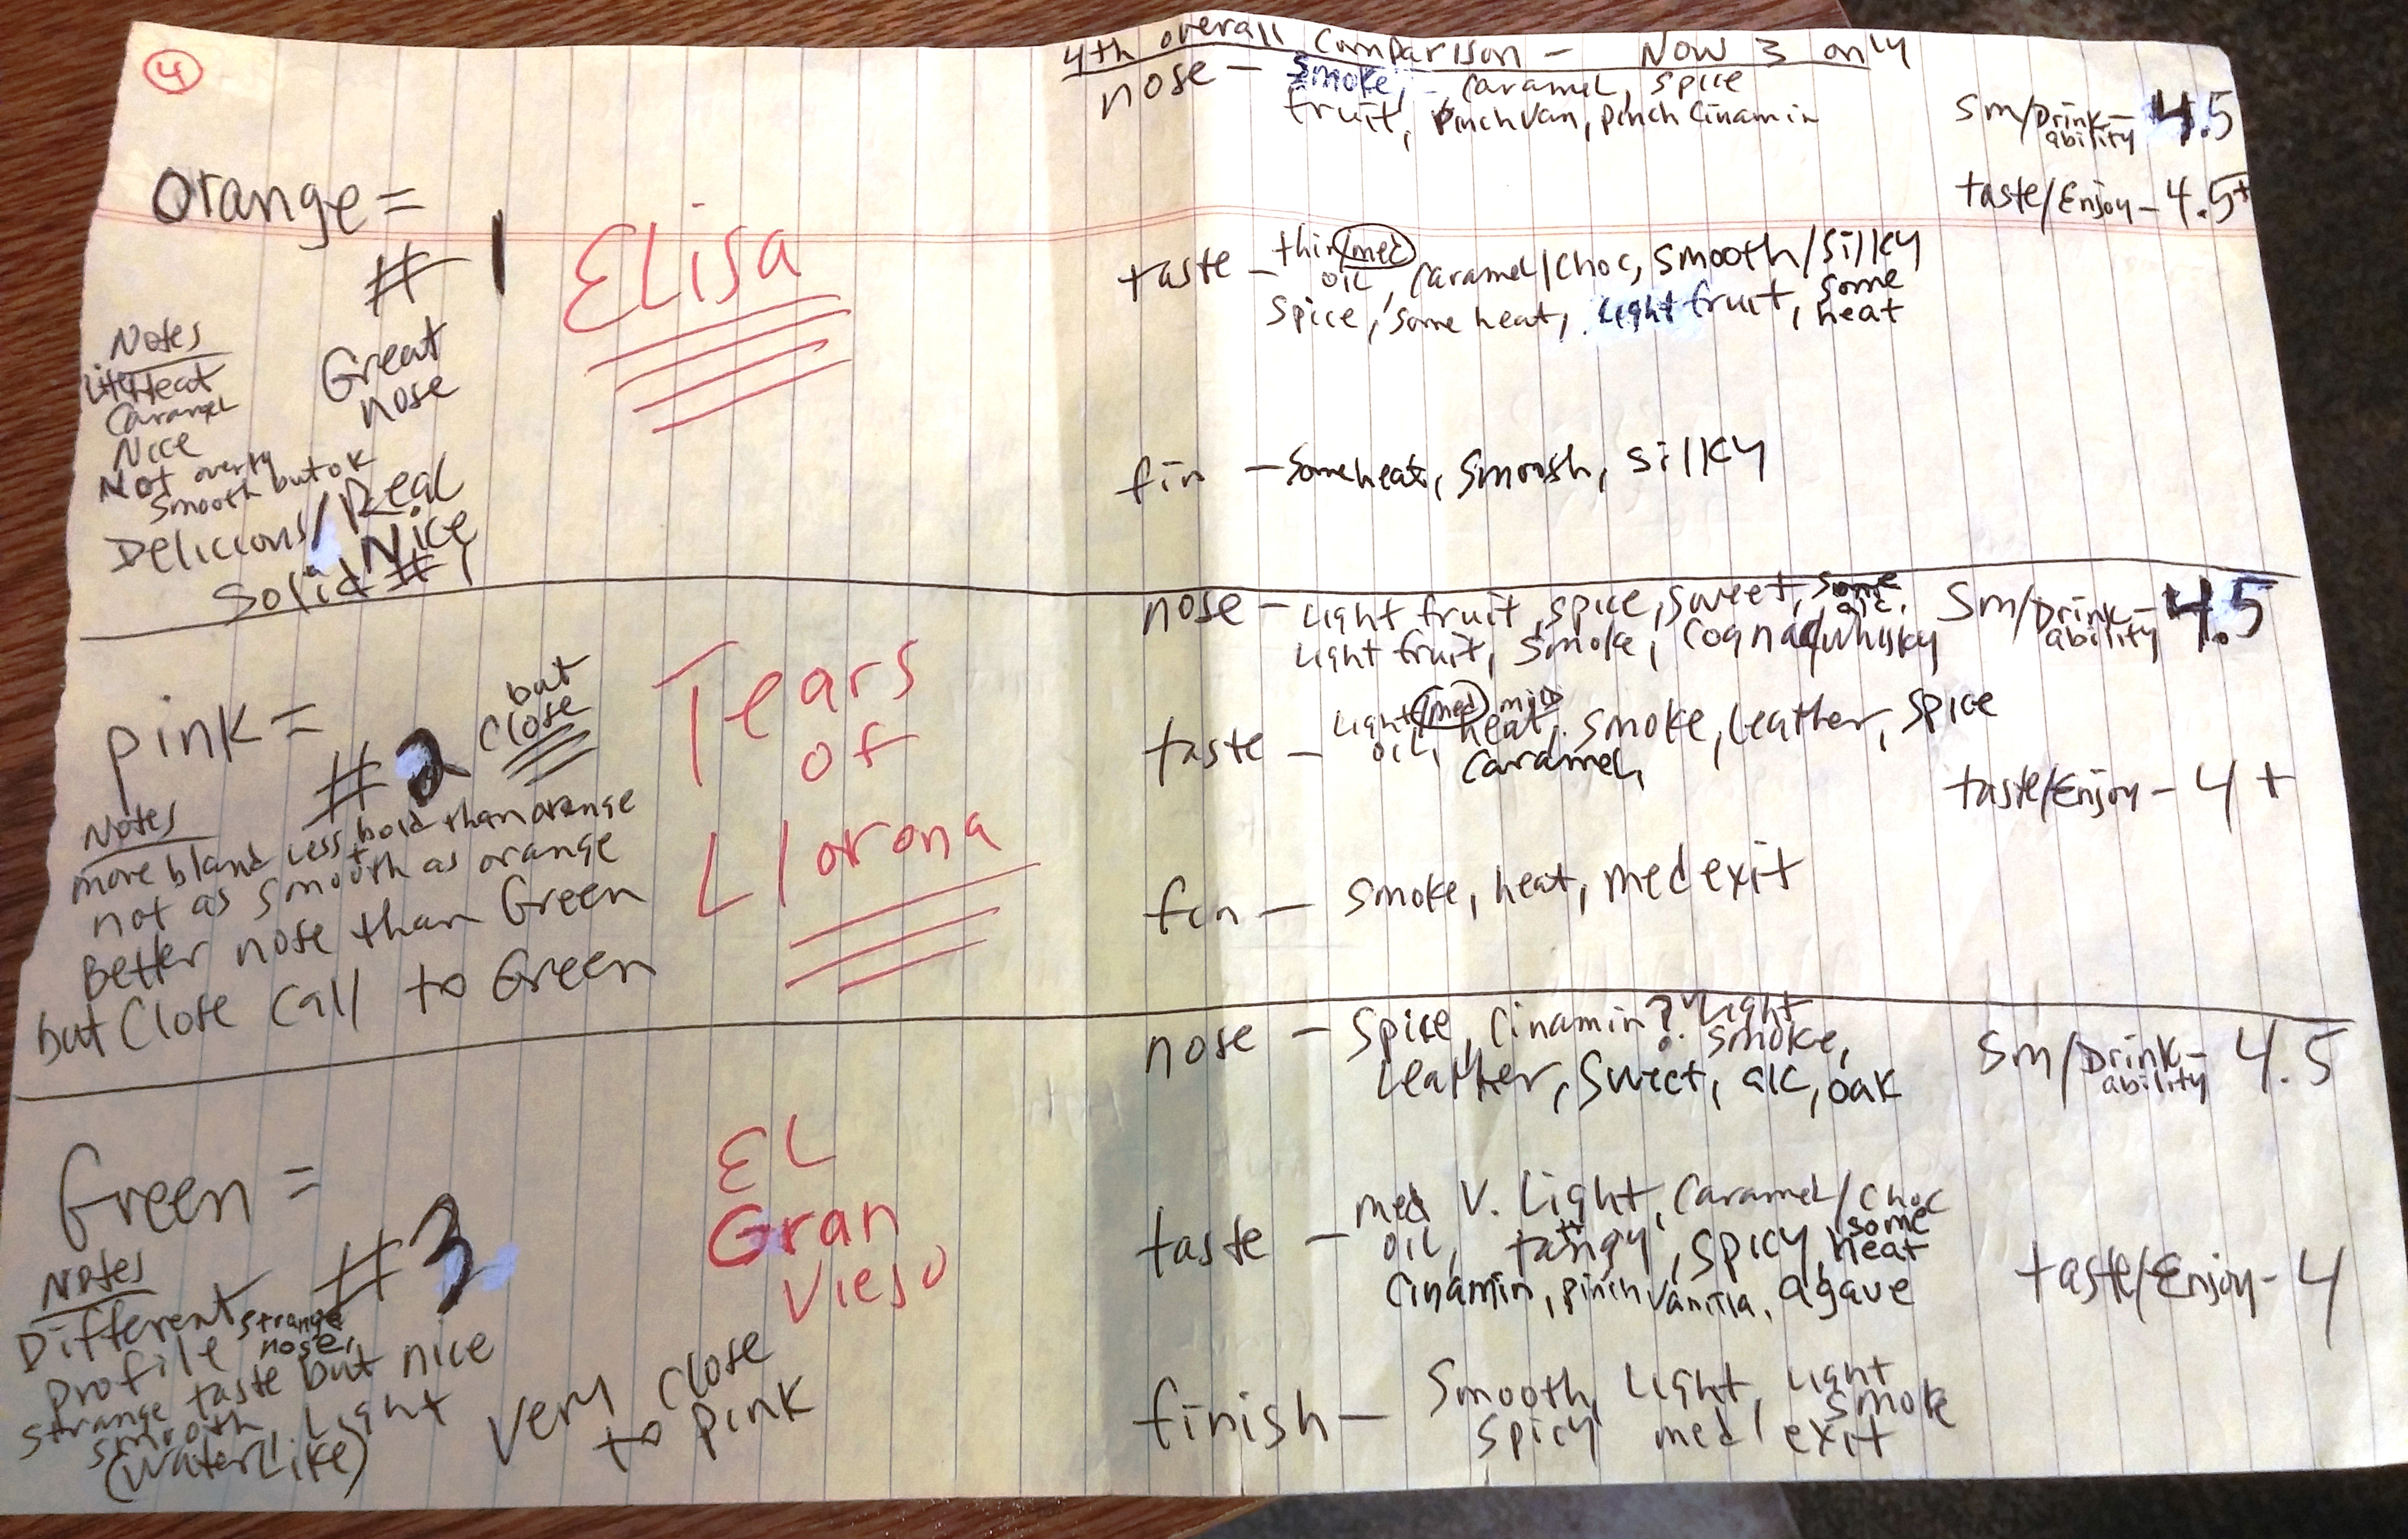 4
4th overall comparison - Now 3 only
orange =
# 1
Elisa
Notes
Lite Heat
Caramel
Nice
Not overly
smooth but ok
Great
nose
Delicious/Real
Nice
Solid #1
nose - smoke, caramel, spice
fruit, pinch van, pinch cinamin
sm/Drink-
ability 4.5
taste/Enjoy - 4.5+
taste - thin/med
oil, caramel/choc, smooth/silky
spice, some heat, light fruit, some
heat
fin - some heat, smooth, silky
pink =
#2 but
close
Tears
of
Llorona
Notes
more bland + less bold than orange
not as smooth as orange
Better nose than Green
but close call to Green
nose - light fruit, spice, sweet, some
alc.
light fruit, smoke, cognac/whisky
sm/Drink-
ability 4.5
taste - light/med mild
oil, heat, smoke, leather, spice
caramel,
taste/Enjoy - 4+
fin - smoke, heat, med exit
Green =
#3
EL
Gran
Viejo
Notes
Different
profile strange
nose,
strange taste but nice
smooth. Light
(water like)
very close
to pink
nose - spice, cinamin? light
smoke,
leather, sweet, alc, oak
sm/Drink-
ability 4.5
taste - med V. Light, caramel/choc
oil, tangy, spicy, some
heat
cinamin, pinch vanilla, agave
taste/Enjoy - 4
finish - smooth, light, light
smoke
spicy med exit